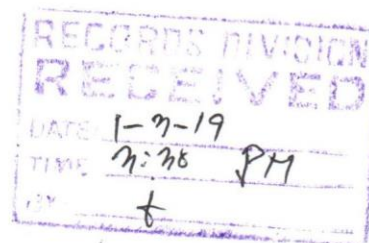 RECORDS DIVISION
RECEIVED
DATE 1-3-19
TIME 3:38 PM
BY